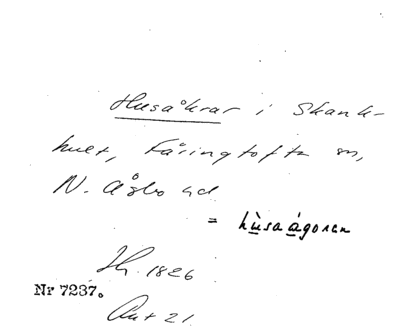 Husåkrar i Skank-
hult, Fåringtofta sn,
N. Åsbo hd
= hùsaágoren
Jh. 1826
Nr 7237.
Akt 21